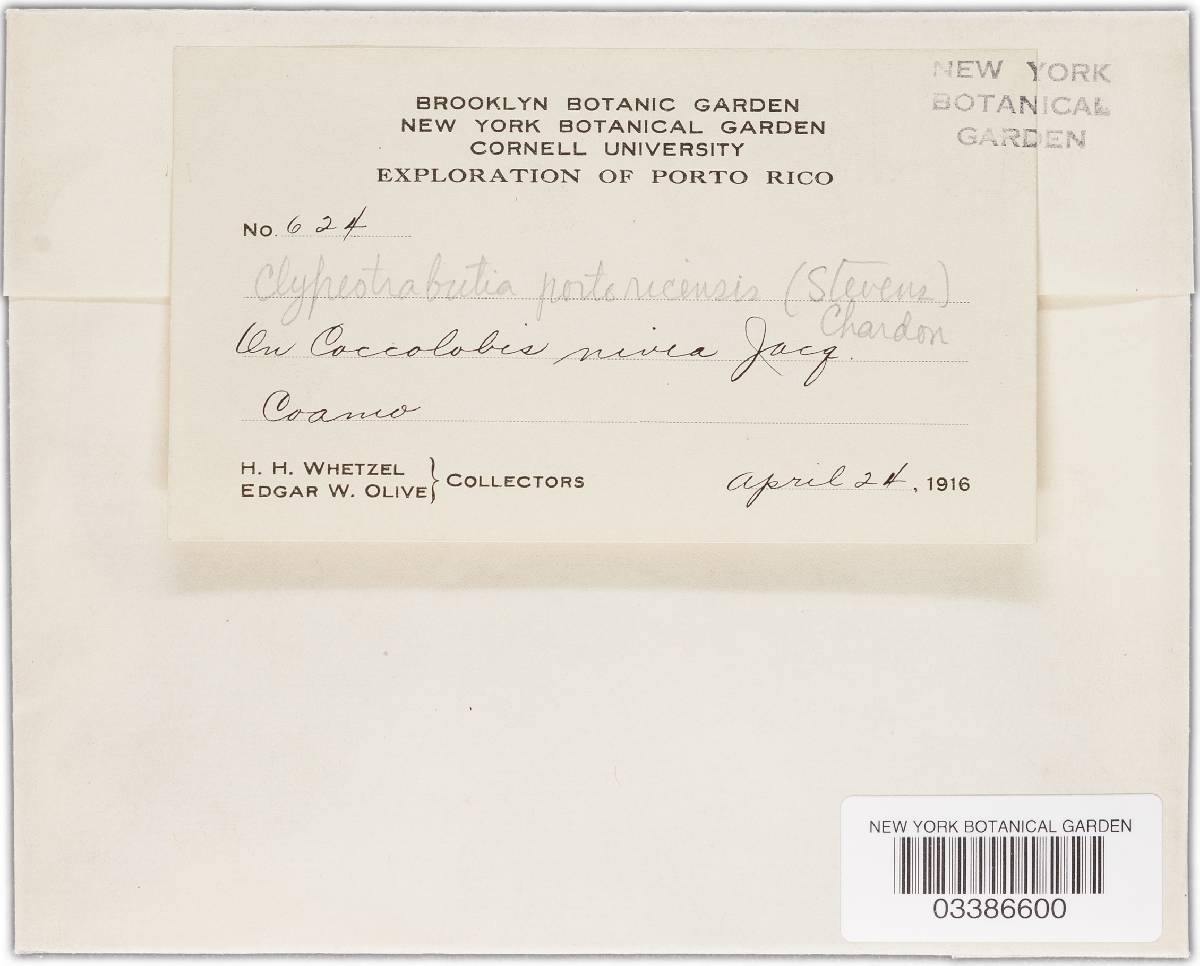 BROOKLYN BOTANIC GARDEN
NEW YORK BOTANICAL GARDEN
CORNELL UNIVERSITY
EXPLORATION OF PORTO RICO
NEW YORK
BOTANICAL
GARDEN
No. 624
Clypeotrabutia portoricensis (Stevens)
Chardon
On Coccolobis nivea Jacq.
Coamo
H. H. WHETZEL
EDGAR W. OLIVE } COLLECTORS
April 24, 1916
NEW YORK BOTANICAL GARDEN
03386600